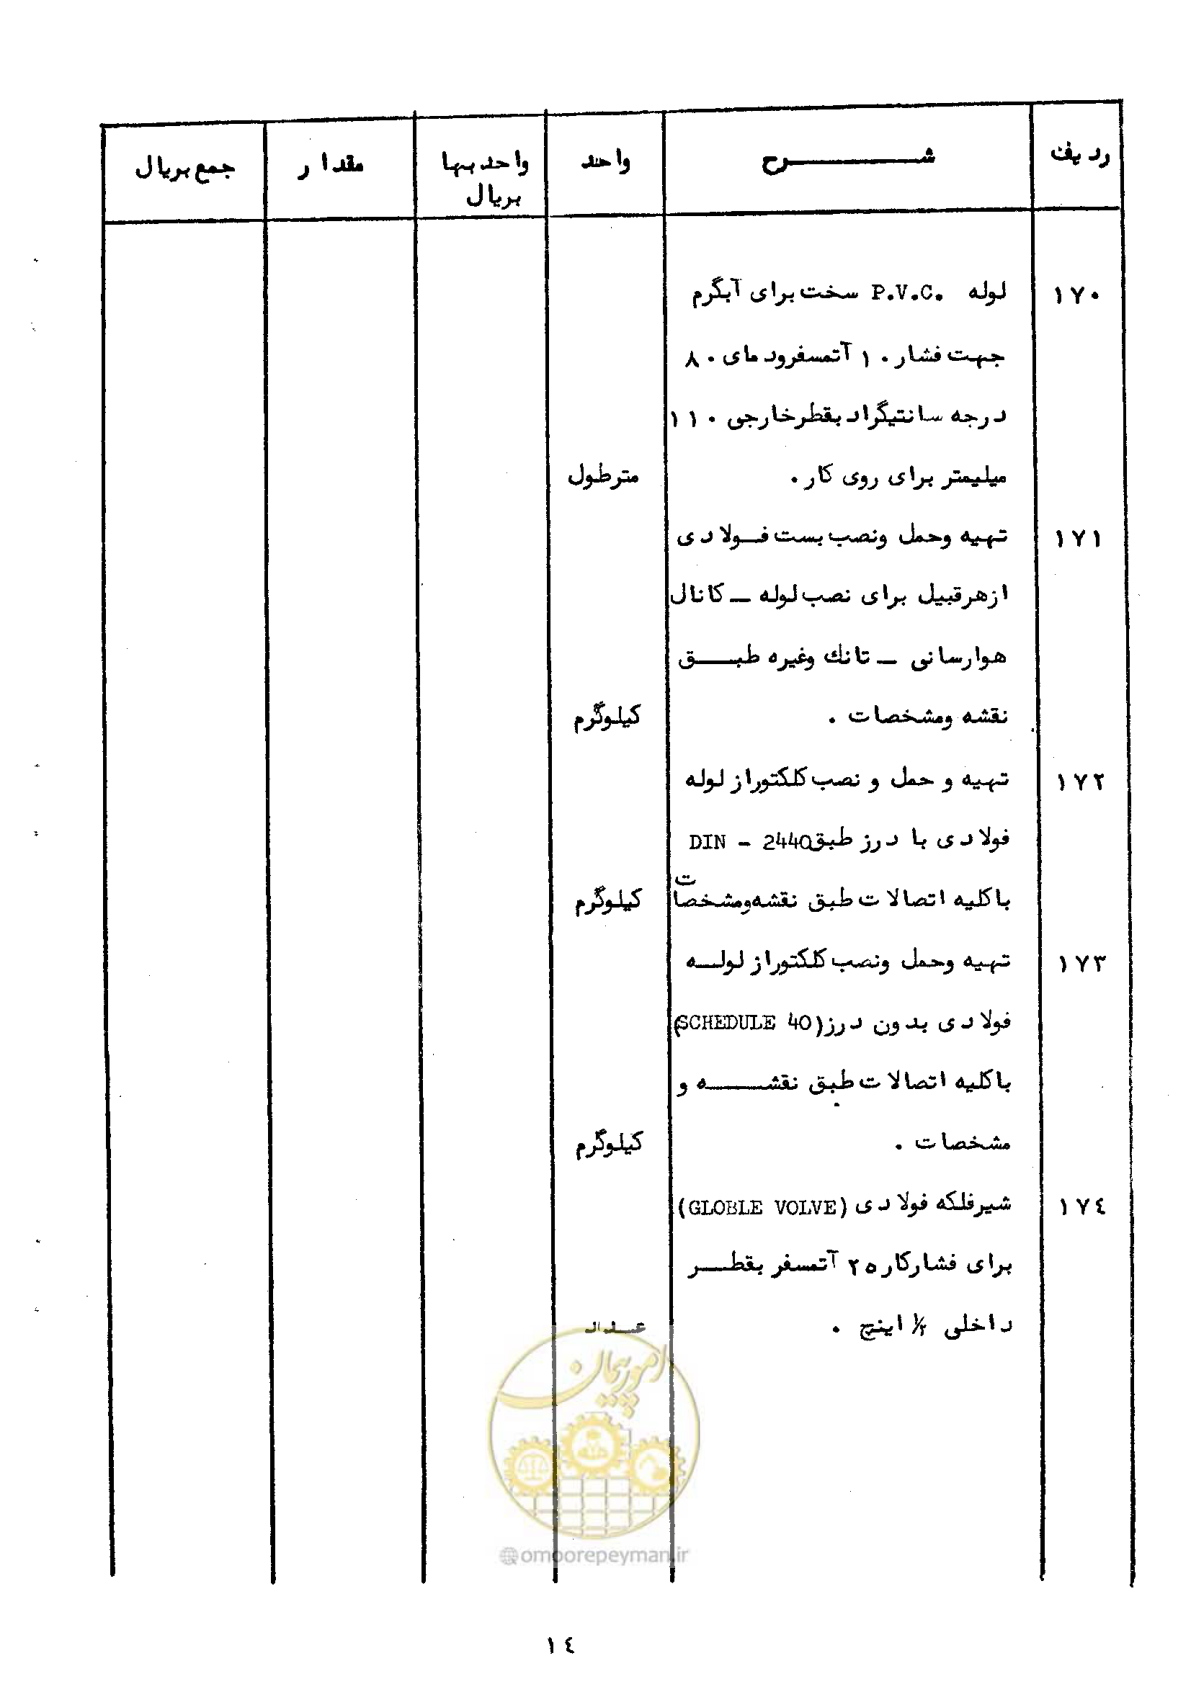 ردیف شـــــــرح واحد واحد بها مقدار جمع بریال
بریال
۱۷۰ لوله P.V.C. سخت برای آبگرم
جهت فشار ۱۰ آتمسفرودمای ۸۰
درجه سانتیگراد بقطرخارجی ۱۱۰
میلیمتر برای روی کار . مترطول
۱۷۱ تهیه وحمل ونصب بست فـولادی
ازهرقبیل برای نصب لوله ــ کانال
هوارسانی ــ تانك وغیره طبــــق
نقشه ومشخصات . کیلوگرم
۱۷۲ تهیه و حمل و نصب کلکتوراز لوله
فولادی با درز طبق DIN - 2440
باکلیه اتصالات طبق نقشه ومشخصات کیلوگرم
۱۷۳ تهیه وحمل ونصب کلکتوراز لولـــه
فولادی بدون درز (SCHEDULE 40)
باکلیه اتصالات طبق نقشـــــه و
مشخصات . کیلوگرم
۱۷٤ شیرفلکه فولادی (GLOBLE VOLVE)
برای فشارکار ۲۵ آتمسفر بقطـــر
داخلی ½ اینچ . عــدد
امور پیمان
@omoorepeyman.ir
۱٤